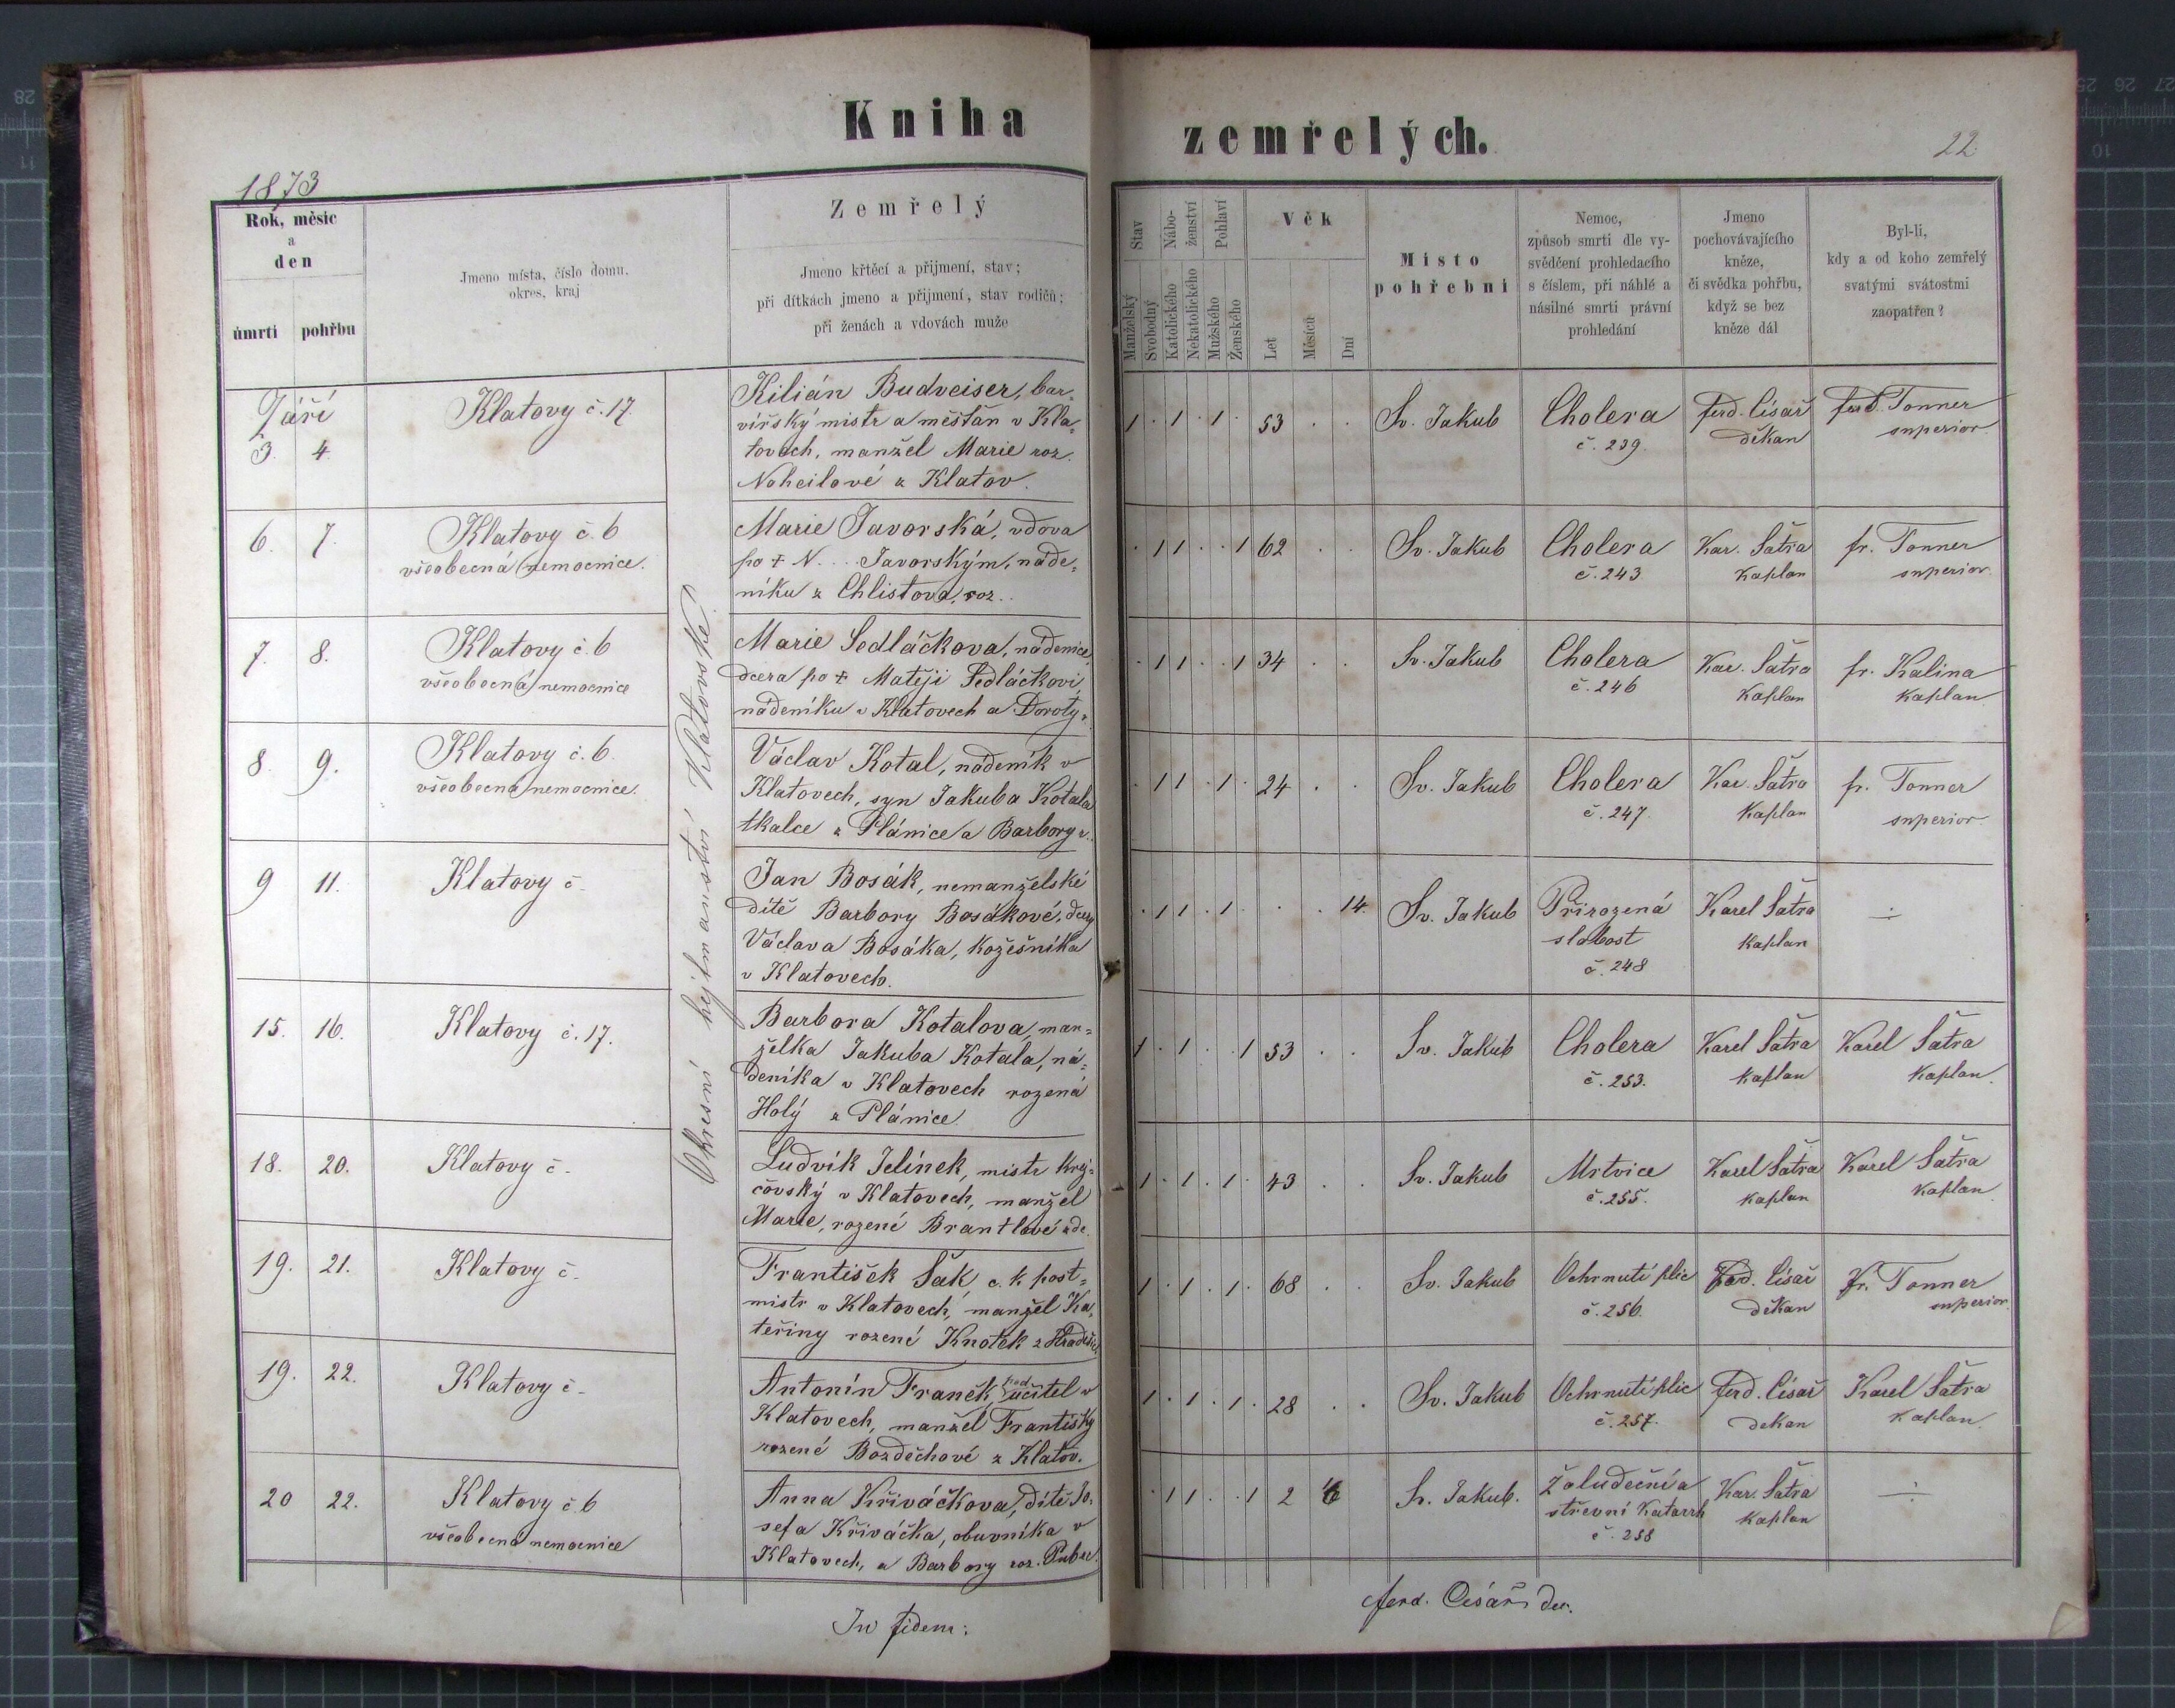 Kniha zemřelých.
22
1873
Rok, měsíc
a
den
úmrtí
pohřbu
Jmeno místa, číslo domu.
okres, kraj
Zemřelý
Jmeno křtěcí a přijmení, stav;
při dítkách jmeno a přijmení, stav rodičů;
při ženách a vdovách muže
Stav
Manželský
Svobodný
Nábo-
ženství
Katolického
Nekatolického
Pohlaví
Mužského
Ženského
Věk
Let
Měsíců
Dní
Místo
pohřební
Nemoc,
způsob smrti dle vy-
svědčení prohledacího
s číslem, při náhlé a
násilné smrti právní
prohledání
Jmeno
pochovávajícího
kněze,
či svědka pohřbu,
když se bez
kněze dál
Byl-li,
kdy a od koho zemřelý
svatými svátostmi
zaopatřen?
Okresní hejtmanství Klatovské
Září
3. 4.
Klatovy č. 17.
Kilián Budveiser, bar-
vířský mistr a měšťan v Kla-
tovech, manžel Marie roz.
Noheilové z Klatov.
1 . 1 . 1 . 53 . .
Sv. Jakub
Cholera
č. 239.
Ferd. Císař
děkan
Ferd. Tonner
superior.
6. 7.
Klatovy č. 6
všeobecná nemocnice.
Marie Javorská, vdova
po † N.... Javorským, náde-
níku z Chlistova, roz..
. 1 1 . . 1 62 . .
Sv. Jakub
Cholera
č. 243
Kar. Šatra
kaplan
fr. Tonner
superior.
7. 8.
Klatovy č. 6
všeobecná nemocnice
Marie Sedláčkova, nádenice,
dcera po † Matěji Sedláčkovi,
nádeníku v Klatovech a Doroty r.
. 1 1 . . 1 34 . .
Sv. Jakub
Cholera
č. 246
Kar. Šatra
kaplan
fr. Kalina
kaplan
8. 9.
Klatovy č. 6.
všeobecná nemocnice.
Václav Kotal, nádeník v
Klatovech, syn Jakuba Kotala
tkalce z Plánice a Barbory r.
. 1 1 . 1 . 24 . .
Sv. Jakub
Cholera
č. 247.
Kar. Šatra
kaplan
fr. Tonner
superior.
9 11.
Klatovy č.
Jan Bosák, nemanželské
dítě Barbory Bosákové, dcery
Václava Bosáka, kožešníka
v Klatovech.
. 1 1 . 1 . . . 14.
Sv. Jakub
Přirozená
slabost
č. 248
Karel Šatra
kaplan
÷
15. 16.
Klatovy č. 17.
Barbora Kotalova, man-
želka Jakuba Kotala, ná-
deníka v Klatovech rozená
Holý z Plánice
1 . 1 . . 1 53 . .
Sv. Jakub
Cholera
č. 253.
Karel Šatra
kaplan
Karel Šatra
kaplan.
18. 20.
Klatovy č.
Ludvík Jelínek, mistr krej-
čovský v Klatovech, manžel
Marie, rozené Brantlové zde.
1 . 1 . 1 . 43 . .
Sv. Jakub
Mrtvice
č. 255.
Karel Šatra
kaplan
Karel Šatra
kaplan.
19. 21.
Klatovy č.
František Šak, c. k. post-
mistr v Klatovech, manžel Ka-
teřiny rozené Knotek z
1 . 1 . 1 . 68 . .
Sv. Jakub
Ochrnutí plic
č. 256.
Ferd. Císař
děkan
Fr. Tonner
superior.
19. 22.
Klatovy č.
Antonín Franěk, podučitel v
Klatovech, manžel Františky
rozené Bozděchové z Klatov.
1 . 1 . 1 . 28 . .
Sv. Jakub
Ochrnutí plic
č. 257.
Ferd. Císař
děkan
Karel Šatra
kaplan.
20 22.
Klatovy č. 6
všeobecná nemocnice
Anna Křiváčkova, dítě Jo-
sefa Křiváčka, obuvníka v
Klatovech, a Barbory roz.
. 1 1 . . 1 2 6
Sv. Jakub.
Žaludeční a
střevní katarrh
č. 258
Kar. Šatra
kaplan
÷
In fidem:
Ferd. Císař děk.